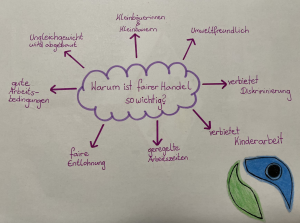 Kleinbäuerinnen
&
Kleinbauern
Umweltfreundlich
Ungleichgewicht
wird abgebaut
gute
Arbeits-
bedingungen
Warum ist fairer Handel
so wichtig?
verbietet
Diskriminierung
verbietet
Kinderarbeit
faire
Entlohnung
geregelte
Arbeitszeiten